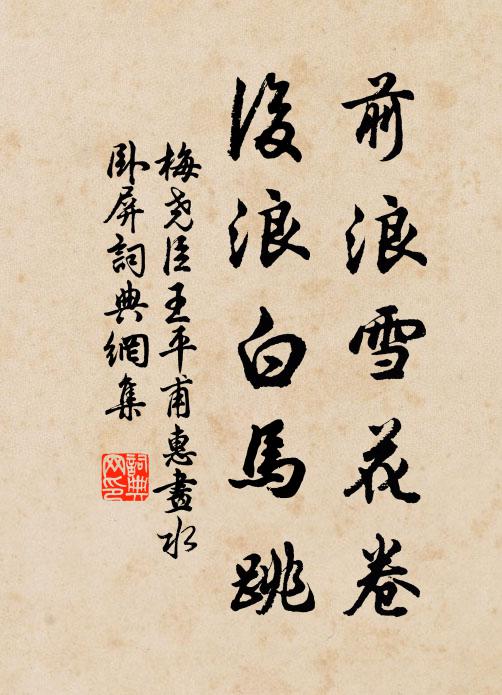 前浪雪花卷
後浪白馬跳
梅堯臣王平甫惠畫水
卧屏詞典網集
詞典網印